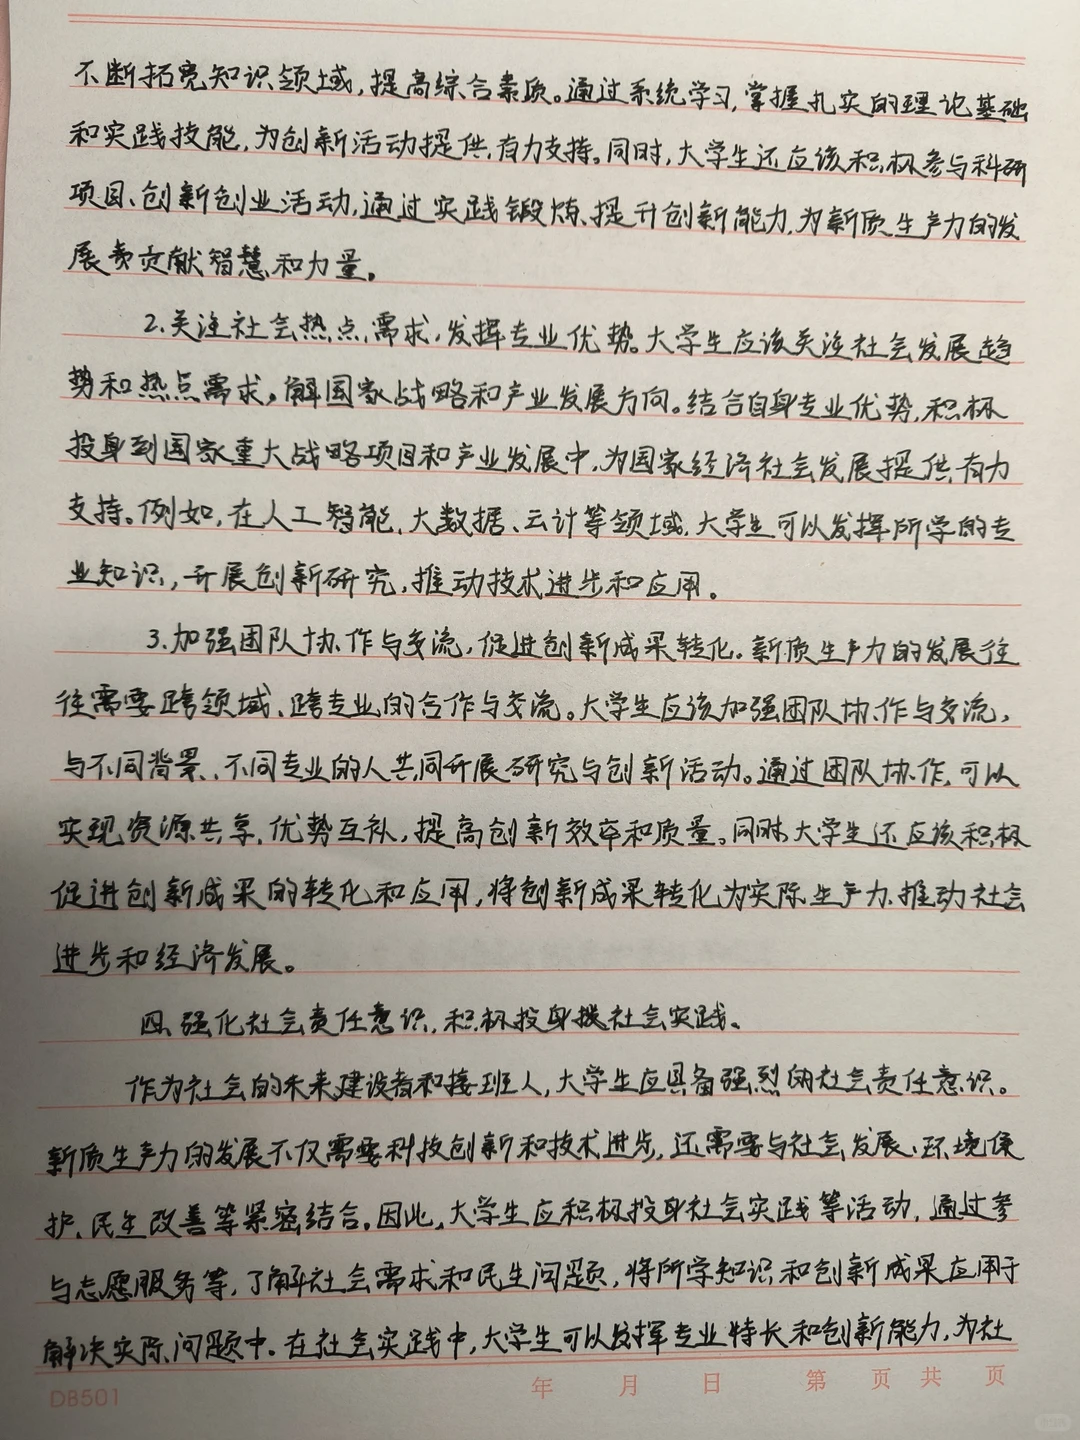 不断拓宽知识领域,提高综合素质。通过系统学习,掌握扎实的理论基础
和实践技能,为创新活动提供有力支持。同时,大学生还应该积极参与科研
项目、创新创业活动,通过实践锻炼、提升创新能力,为新质生产力的发
展贡献智慧和力量。
2.关注社会热点需求,发挥专业优势。大学生应该关注社会发展趋
势和热点需求,解国家战略和产业发展方向。结合自身专业优势,积极
投身到国家重大战略项目和产业发展中,为国家经济社会发展提供有力
支持。例如,在人工智能、大数据、云计等领域,大学生可以发挥所学的专
业知识,开展创新研究,推动技术进步和应用。
3.加强团队协作与交流,促进创新成果转化。新质生产力的发展往
往需要跨领域、跨专业的合作与交流。大学生应该加强团队协作与交流,
与不同背景、不同专业的人共同开展研究与创新活动。通过团队协作,可以
实现资源共享,优势互补,提高创新效率和质量。同时,大学生还应该积极
促进创新成果的转化和应用,将创新成果转化为实际生产力,推动社会
进步和经济发展。
四、强化社会责任意识,积极投身社会实践。
作为社会的未来建设者和接班人,大学生应具备强烈的社会责任意识。
新质生产力的发展不仅需要科技创新和技术进步,还需要与社会发展、环境保
护、民生改善等紧密结合。因此,大学生应积极投身社会实践等活动,通过参
与志愿服务等,了解社会需求和民生问题,将所学知识和创新成果应用于
解决实际问题中。在社会实践中,大学生可以发挥专业特长和创新能力,为社
D8501 年 月 日 第 页 共 页